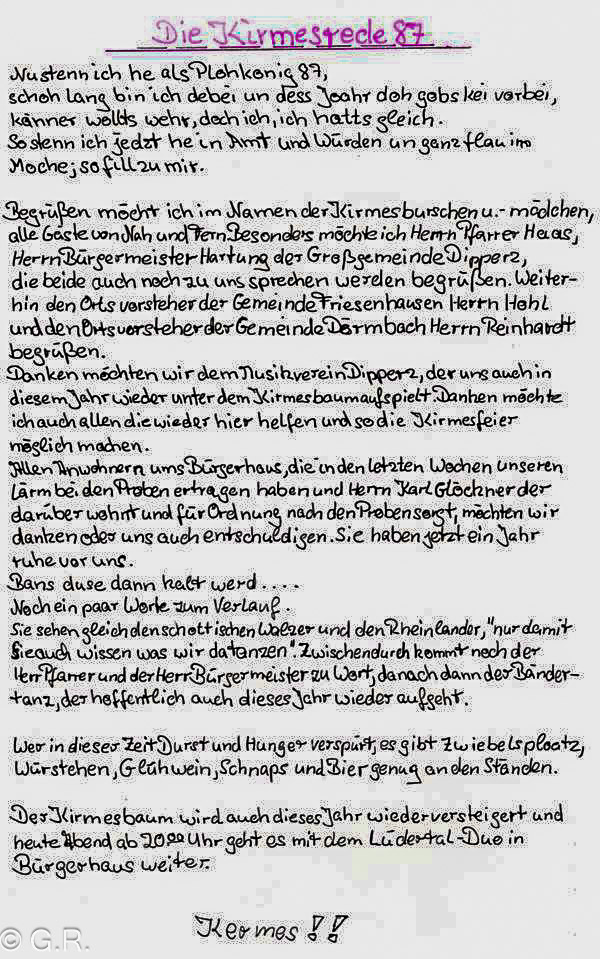 Die Kirmesrede 87
Nu stenn ich he als Plohkönig 87,
schoh lang bin ich debei un dess Joahr doh gobs kei vorbei,
känner wollds wehr, doch ich, ich hatts gleich.
So stenn ich jedzt he in Amt und Würden un ganz flau im
Moche; so fill zu mir.
Begrüßen möcht ich im Namen der Kirmesburschen u.- mädchen,
alle Gäste von Nah und Fern. Besonders möchte ich Herrn Pfarrer Haas,
Herrn Bürgermeister Hartung der Großgemeinde Dipperz,
die beide auch noch zu uns sprechen werden begrüßen. Weiter-
hin den Ortsvorsteher der Gemeinde Friesenhausen Herrn Hohl
und den Ortsvorsteher der Gemeinde Dörmbach Herrn Reinhardt
begrüßen.
Danken möchten wir dem Musikverein Dipperz, der uns auch in
diesem Jahr wieder unter dem Kirmesbaum aufspielt. Danken möchte
ich auch allen die wieder hier helfen und so die Kirmesfeier
möglich machen.
Allen Anwohnern ums Bürgerhaus, die in den letzten Wochen unseren
Lärm bei den Proben ertragen haben und Herrn Karl Glöckner der
darüber wohnt und für Ordnung nach den Proben sorgt, möchten wir
danken oder uns auch entschuldigen. Sie haben jetzt ein Jahr
ruhe vor uns.
Bans duse dann kalt werd ....
Noch ein paar Worte zum Verlauf.
Sie sehen gleich den schottischen Walzer und den Rheinländer, "nur damit
Sie auch wissen was wir da tanzen". Zwischendurch kommt noch der
Herr Pfarrer und der Herr Bürgermeister zu Wort, danach dann der Bänder-
tanz, der hoffentlich auch dieses Jahr wieder aufgeht.
Wer in dieser Zeit Durst und Hunger verspürt, es gibt Zwiebelsploatz,
Würstchen, Glühwein, Schnaps und Bier genug an den Ständen.
Der Kirmesbaum wird auch dieses Jahr wieder versteigert und
heute Abend ab 20.00 Uhr geht es mit dem Lüdertal-Duo in
Bürgerhaus weiter.
Kermes !!
© G.R.